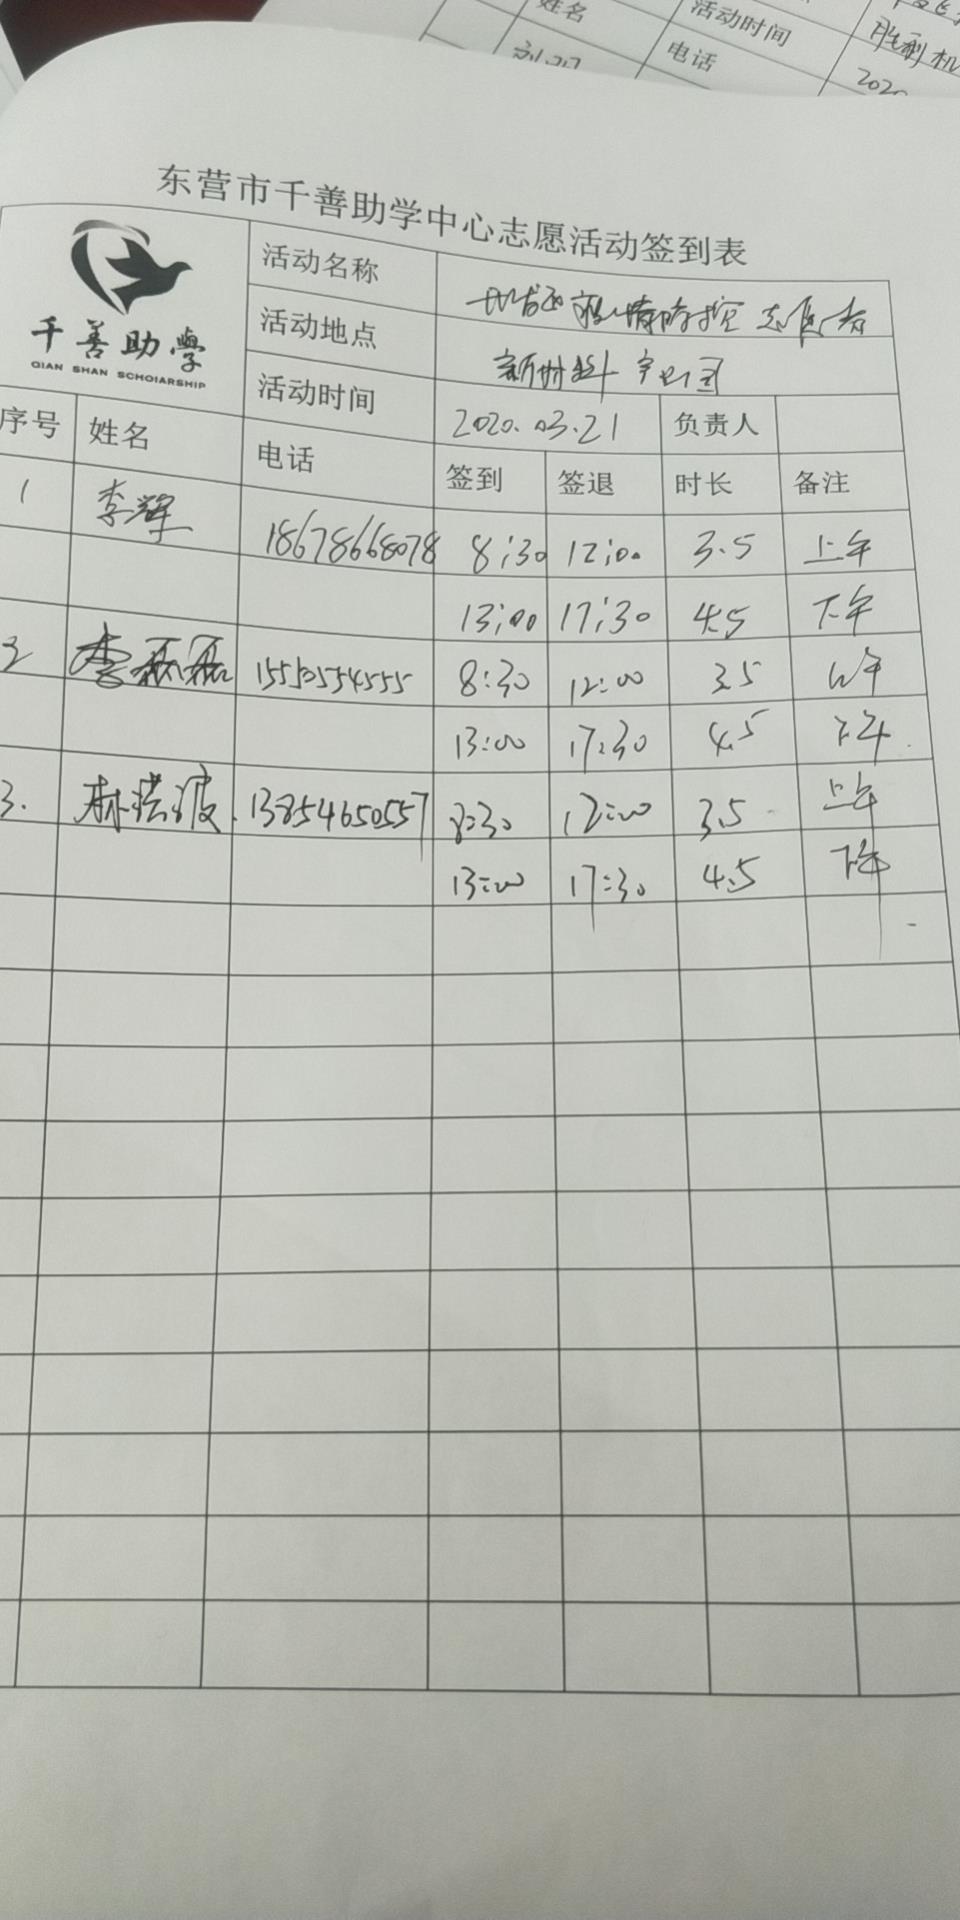 姓名
活动时间
电话
2020
东营市千善助学中心志愿活动签到表
千善助學
QIAN SHAN SCHOIARSHIP
活动名称 疫情防控志愿者
活动地点
活动时间 2020.03.21 负责人
序号 姓名 电话 签到 签退 时长 备注
1 李辉 18678668078 8:30 12:00 3.5 上午
13:00 17:30 4.5 下午
2 李磊磊 8:30 12:00 3.5 上午
13:00 17:30 4.5 下午
3. 林洪波 13854650557 8:30 12:00 3.5 上午
13:00 17:30 4.5 下午